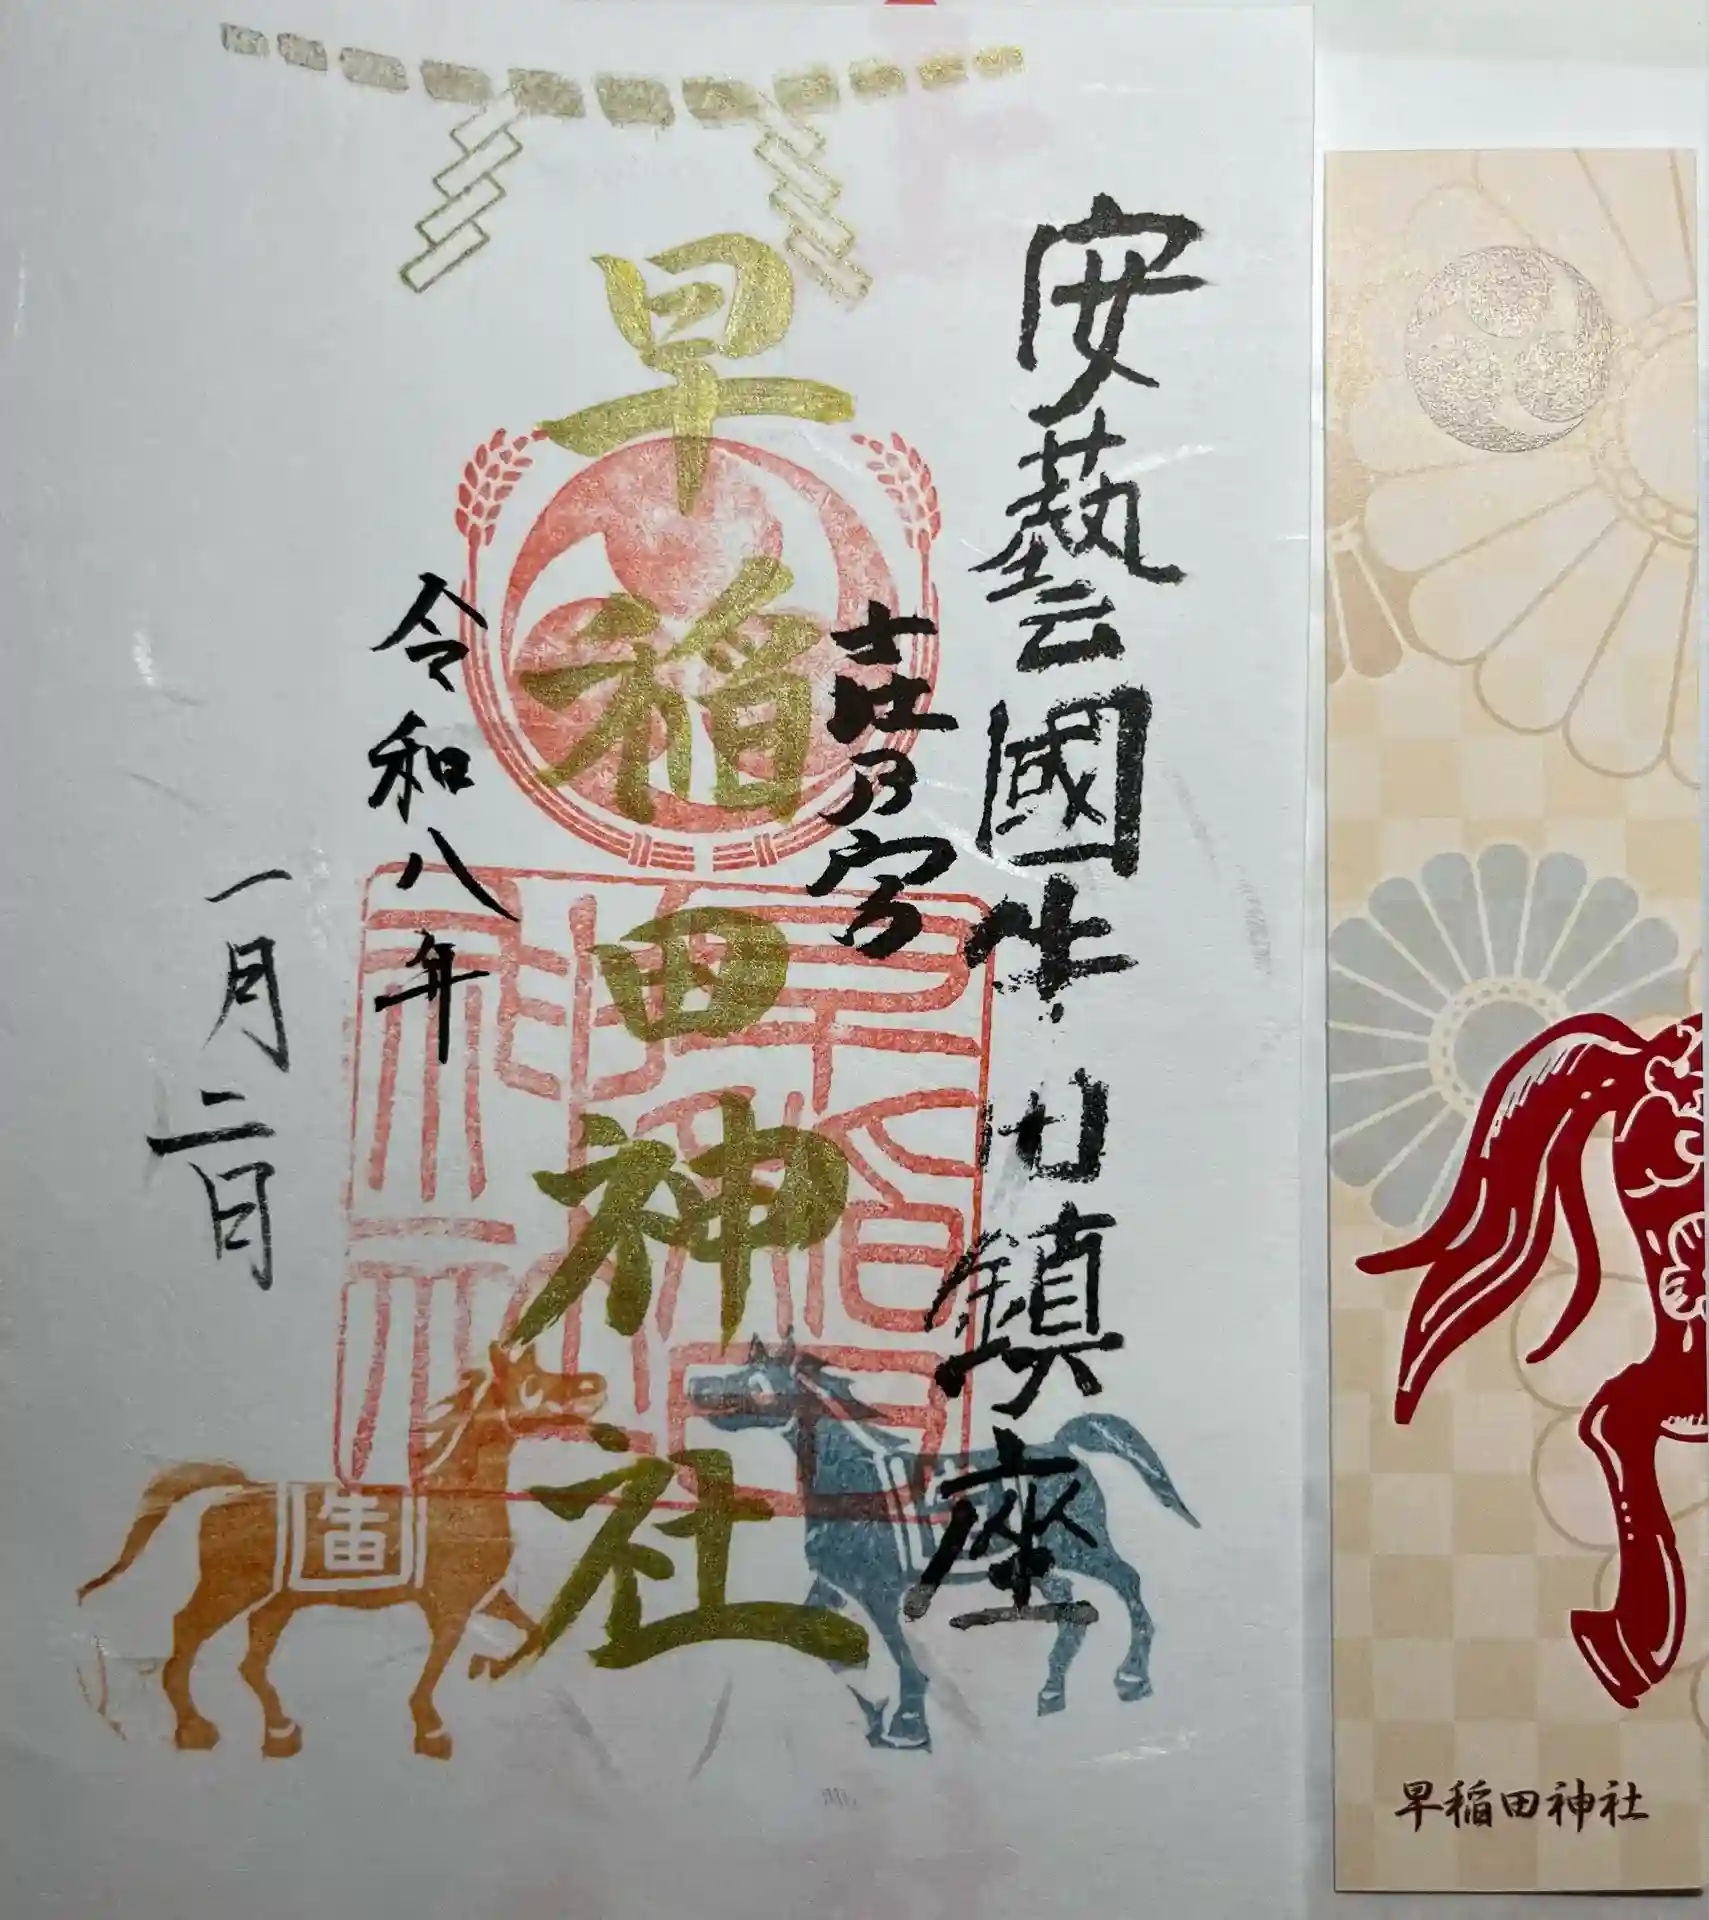 安藝國牛田鎮座
早稲田神社
令和八年
一月二日
早稲田神社
牛田
早稲田神社